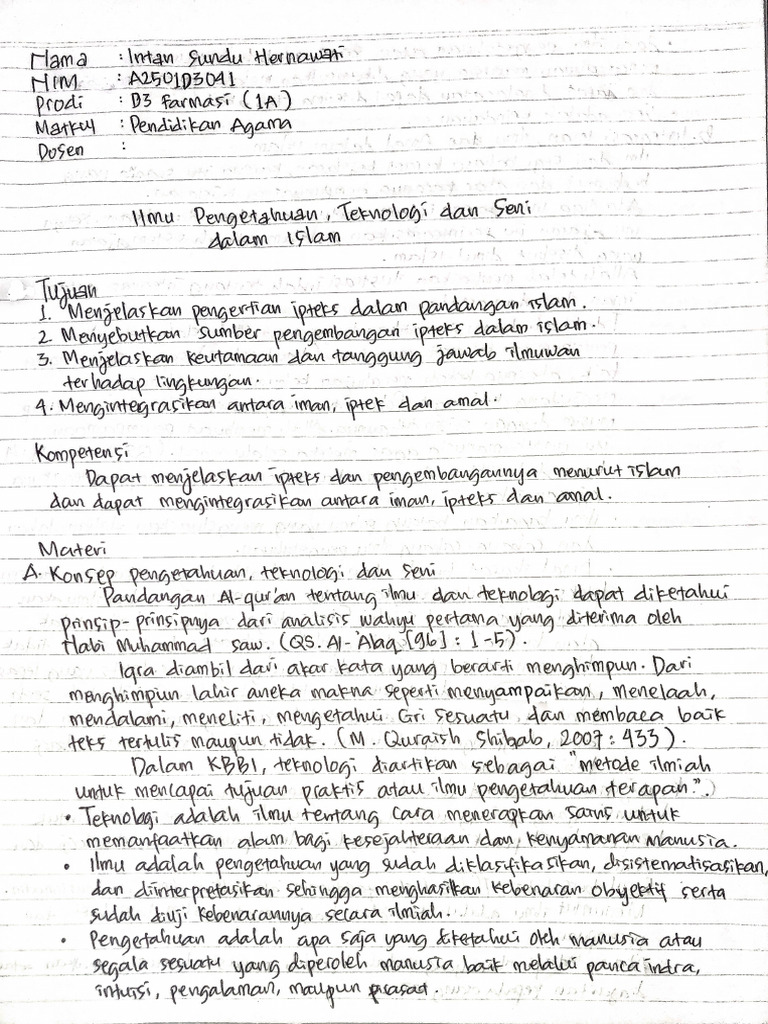 Nama : Intan Sundu Hernawati
NIM : A2501D3041
Prodi : D3 farmasi (1A)
Matkul : Pendidikan Agama
Dosen :
Ilmu Pengetahuan, Teknologi dan Seni
dalam Islam
Tujuan
1. Menjelaskan pengertian ipteks dalam pandangan islam.
2. Menyebutkan sumber pengembangan ipteks dalam islam.
3. Menjelaskan keutamaan dan tanggung jawab ilmuwan
terhadap lingkungan.
4. Mengintegrasikan antara iman, iptek dan amal.
Kompetensi
Dapat menjelaskan ipteks dan pengembangannya menurut islam
dan dapat mengintegrasikan antara iman, ipteks dan amal.
Materi
A. Konsep pengetahuan, teknologi dan seni
Pandangan Al-qur'an tentang ilmu dan teknologi dapat diketahui
prinsip-prinsipnya dari analisis wahyu pertama yang diterima oleh
Nabi Muhammad saw. (QS. Al-'Alaq [96] : 1-5).
Iqra diambil dari akar kata yang berarti menghimpun. Dari
menghimpun lahir aneka makna seperti menyampaikan, menelaah,
mendalami, meneliti, mengetahui ciri sesuatu dan membaca baik
teks tertulis maupun tidak. (M. Quraish Shibab, 2007 : 433).
Dalam KBBI, teknologi diartikan sebagai "metode ilmiah
untuk mencapai tujuan praktis atau ilmu pengetahuan terapan".)
• Teknologi adalah ilmu tentang cara menerapkan sains untuk
memanfaatkan alam bagi kesejahteraan dan kenyamanan manusia.
• Ilmu adalah pengetahuan yang sudah diklasifikasikan, disistematisasikan,
dan diinterpretasikan sehingga menghasilkan kebenaran obyektif serta
sudah diuji kebenarannya secara ilmiah.
• Pengetahuan adalah apa saja yang diketahui oleh manusia atau
segala sesuatu yang diperoleh manusia baik melalui panca indra,
intuisi, pengalaman, maupun